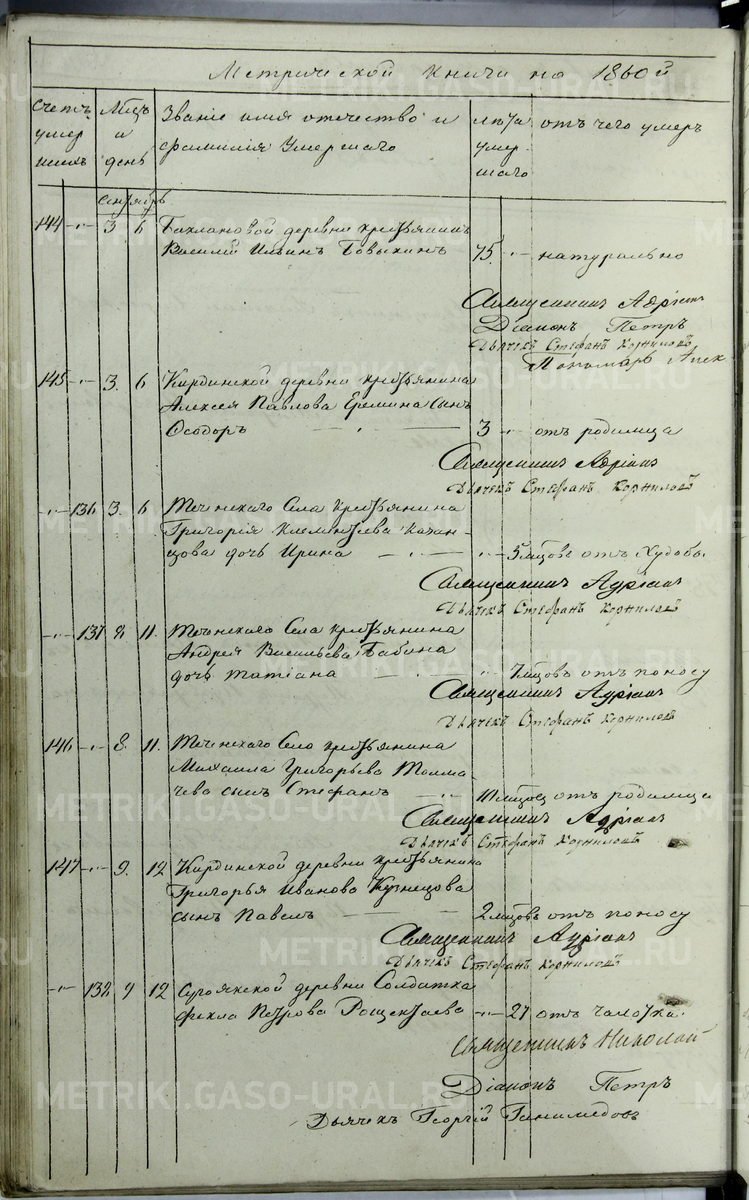 Метрической книги на 1860й
счетъ умершихъ Мѣцъ и день Званіе имя отечество и фамилія Умершаго лѣта умершаго отъ чего умеръ
Сентябрь
144 3 6 Баклановой деревни крестьянинъ
Василій Ильинъ Бовыкинъ 75 натурально
Священникъ Адріанъ
Діаконъ Петръ
Дьячекъ Стефанъ Корниловъ
Пономарь Алек
145 3. 6 Кирдинской деревни крестьянина
Алексея Павлова Еремина сынъ
Ѳеодоръ 3 отъ родимца
Священникъ Адріанъ
Дьячекъ Стефанъ Корниловъ
136 3. 6 Теченскаго Села крестьянина
Григорія Клементьева Казан-
цова дочь Ирина 5 мѣцовъ отъ Худобы
Священникъ Адріанъ
Дьячекъ Стефанъ Корниловъ
137 8 11. Теченскаго Села крестьянина
Андрея Васильева Бабина
дочь татіана 7 мѣцовъ отъ поносу
Священникъ Адріанъ
Дьячекъ Стефанъ Корниловъ
146 8. 11. Теченскаго Села крестьянина
Михаила Григорьева Толма-
чева сынъ Стефанъ 11 мѣцовъ отъ родимца
Священникъ Адріанъ
Дьячекъ Стефанъ Корниловъ
147 9. 12 Кирдинской деревни крестьянина
Григорья Иванова Кузнецова
сынъ Павелъ 2 мѣцовъ отъ поносу
Священникъ Адріанъ
Дьячекъ Стефанъ Корниловъ
138 9 12 Сугоякской деревни Солдатка
фекла Петрова Рощектаева 27 отъ чахотки.
Священникъ Николай
Діаконъ Петръ
Дьячекъ Георгій Ганимедовъ
METRIKI.GASO-URAL.RU